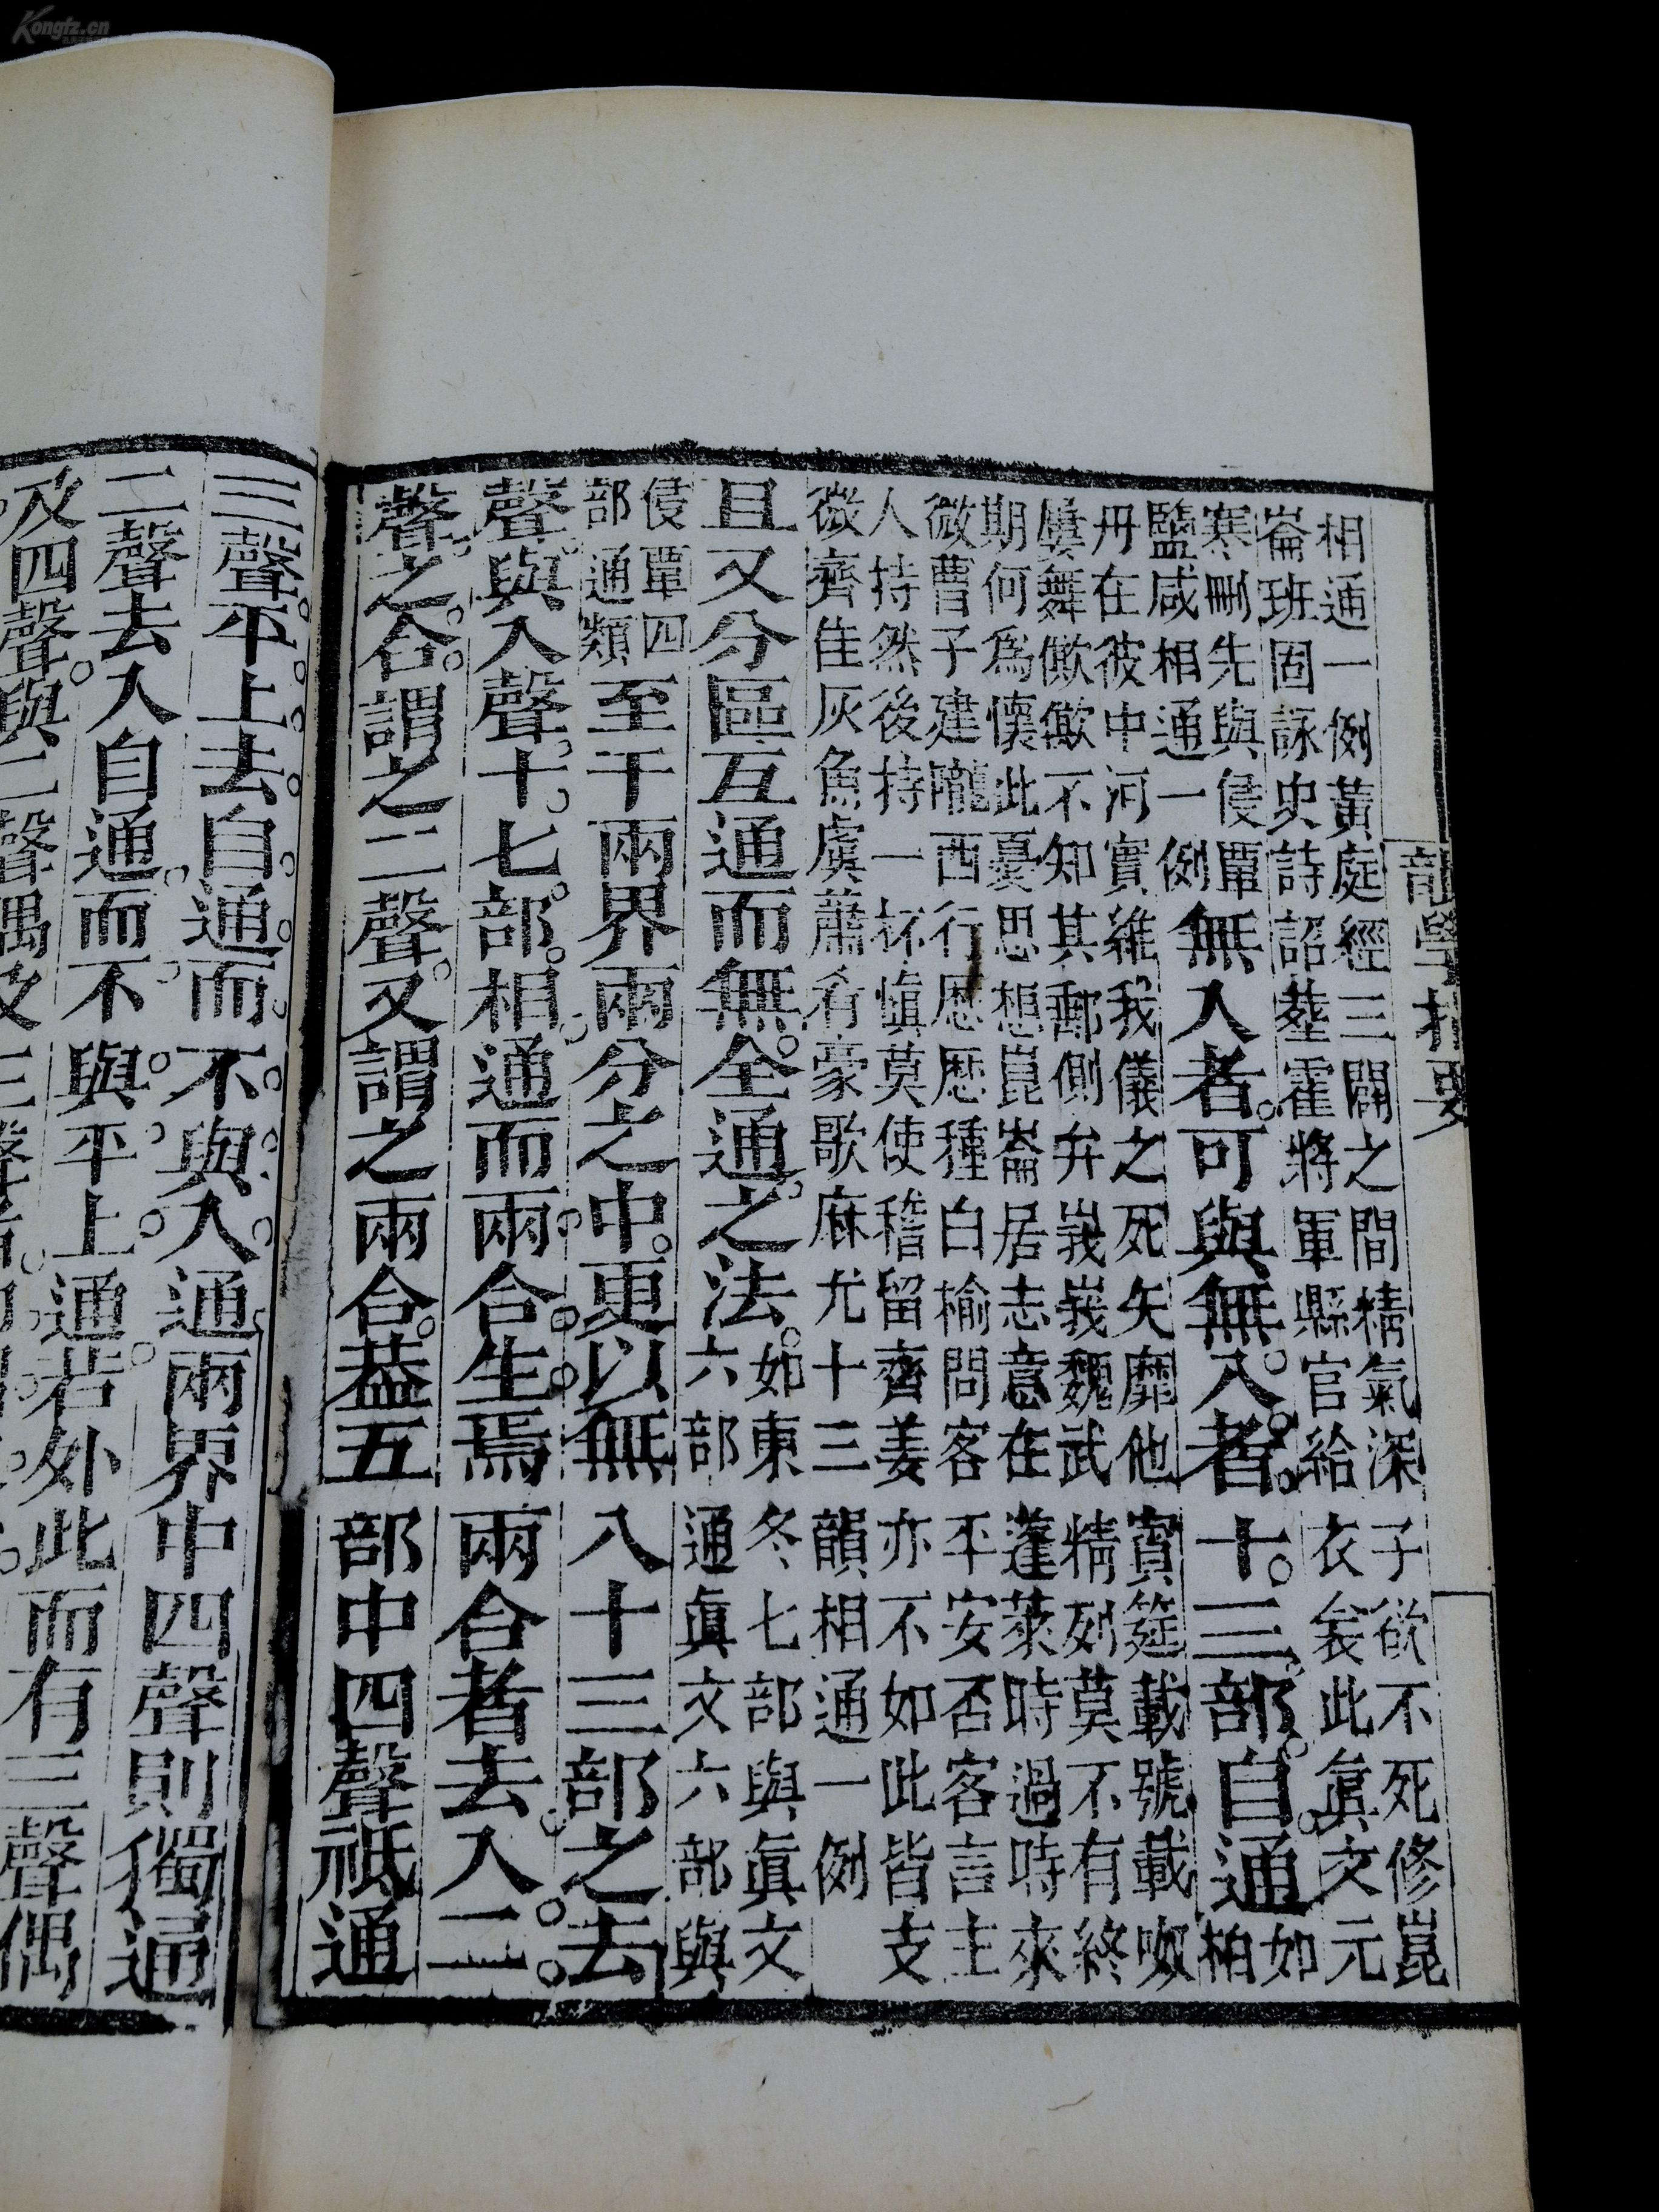 Kongfz.cn
韻學指要
相通一例黃庭經三關之間精氣深子欲不死修崑
崙班固詠史詩詔葬霍將軍縣官給衣衾此眞文元
寒刪先與侵覃
鹽咸相通一例
無入者可與無入者十三部自通
如
柏
舟在彼中河實維我儀之死矢靡他賓筵載號載呶
屢舞僛僛不知其郵側弁峩峩魏武精列莫不有終
期何爲懷此憂思想崑崙居志意在蓬萊時過時來
微曹子建隴西行歷歷種白榆問客平安否客言主
人持然後持一杯愼莫使稽留齊姜亦不如此皆支
微齊佳灰魚虞蕭肴豪歌麻尤十三韻相通一例
且又分區互通而無全通之法
如東冬七部與眞文
六部通眞文六部與
侵覃四
部通類
至于兩界兩分之中更以無入十三部之去
聲與入聲十七部相通而兩合生焉兩合者去入二
聲之合謂之二聲又謂之兩合葢五部中四聲祗通
三聲平上去自通而不與入通兩界中四聲則獨通
二聲去入自通而不與平上通若外此而有三聲偶
及四聲與二聲偶及三聲